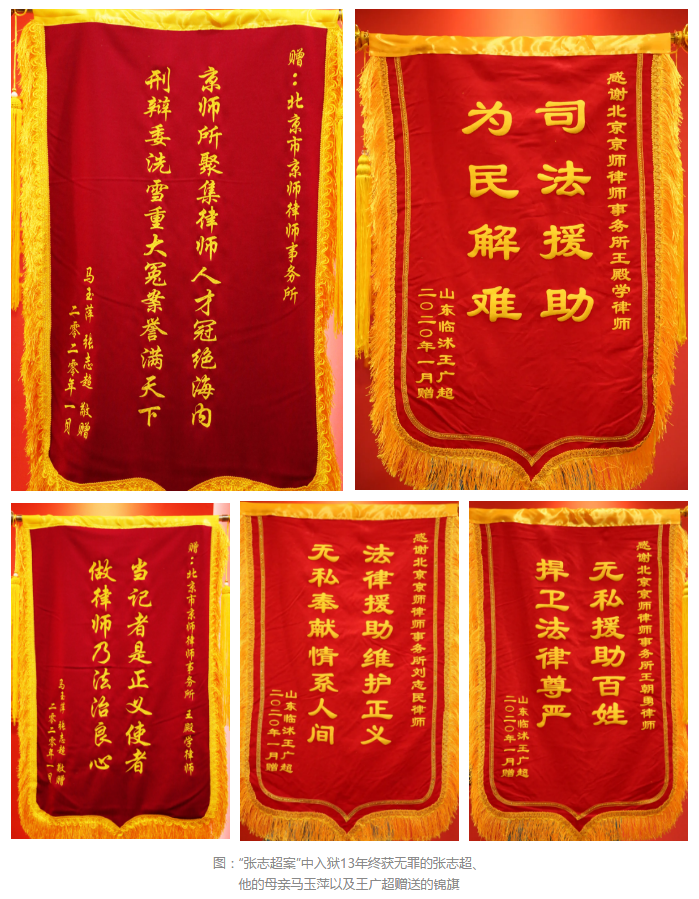 赠：北京市京师律师事务所
京师所聚集律师人才冠绝海内
刑辩委洗雪重大冤案誉满天下
马玉萍 张志超 敬赠
二零二零年一月
感谢北京京师律师事务所王殿学律师
司法援助
为民解难
山东临沭王广超
二〇二〇年一月赠
赠：北京市京师律师事务所 王殿学律师
当记者是正义使者
做律师乃法治良心
马玉萍 张志超 敬赠
二零二零年一月
感谢北京京师律师事务所刘志民律师
法律援助维护正义
无私奉献情系人间
山东临沭王广超
二〇二〇年一月赠
感谢北京京师律师事务所王朝勇律师
无私援助百姓
捍卫法律尊严
山东临沭王广超
二〇二〇年一月赠
图：“张志超案”中入狱13年终获无罪的张志超、
他的母亲马玉萍以及王广超赠送的锦旗